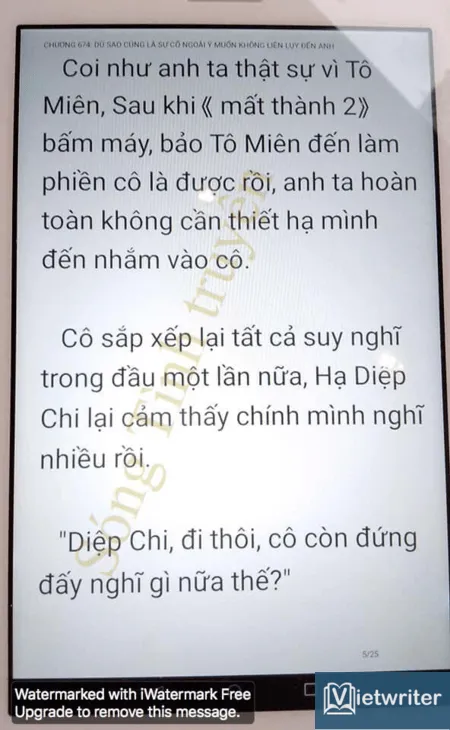 CHƯƠNG 674: DÙ SAO CŨNG LÀ SỰ CỐ NGOÀI Ý MUỐN KHÔNG LIÊN LỤY ĐẾN ANH
Coi như anh ta thật sự vì Tô
Miên, Sau khi《 mất thành 2》
bấm máy, bảo Tô Miên đến làm
phiền cô là được rồi, anh ta hoàn
toàn không cần thiết hạ mình
đến nhắm vào cô.
Cô sắp xếp lại tất cả suy nghĩ
trong đầu một lần nữa, Hạ Diệp
Chi lại cảm thấy chính mình nghĩ
nhiều rồi.
"Diệp Chi, đi thôi, cô còn đứng
đấy nghĩ gì nữa thế?"
Sóng Tình truyện
5/25
Watermarked with iWatermark Free
Upgrade to remove this message.
Vietwriter